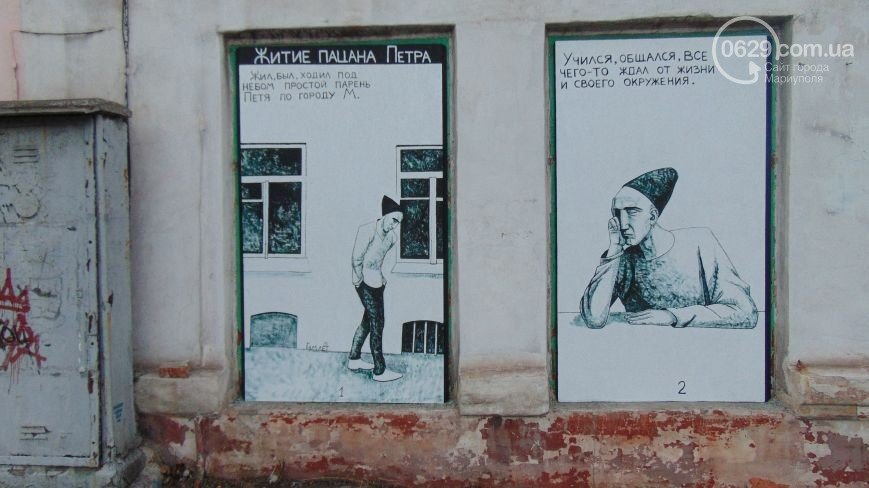 0629.com.ua
Сайт города
Мариуполя
Житие пацана Петра
Жил, был, ходил под
небом простой парень
Петя по городу М.
Гамлет
1
Учился, общался, все
чего-то ждал от жизни
и своего окружения.
2